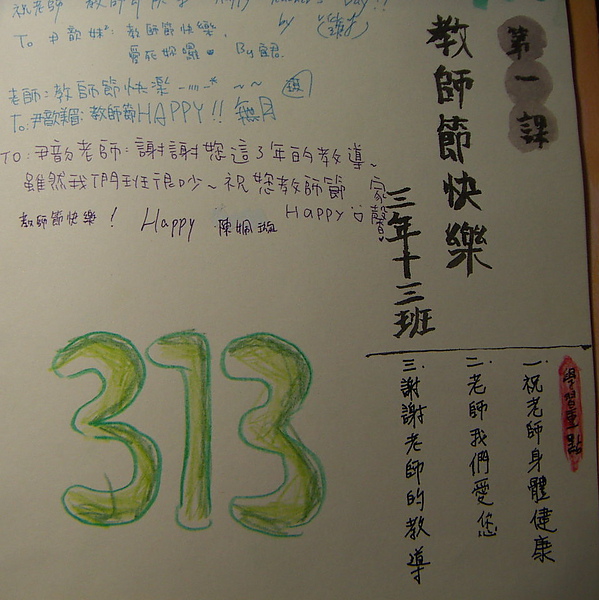 第一課
教師節快樂
三年十三班
學習重點
一.祝老師身體健康
二.老師我們愛您
三.謝謝老師的教導
祝老師 教師節快樂 Happy Teacher's Day!! by
To 尹歆妹: 教師節快樂,
愛死妳囉 By宜君.
老師:教師節快樂~~
To.尹歆眉:教師節HAPPY!!
TO:尹歆老師:謝謝您這3年的教導、
雖然我們班很吵~祝您教師節
Happy 家馨
教師節快樂! Happy 陳姵璇
313